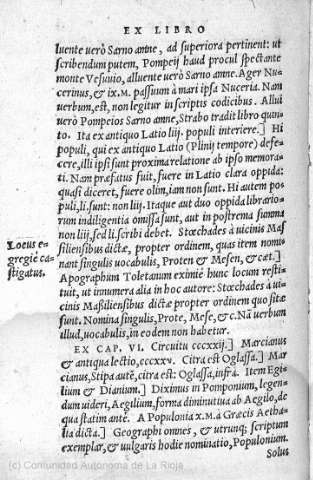 EX LIBRO
luente uerò Sarno amne, ad superiora pertinent: ut
scribendum putem, Pompeij haud procul spectante
monte Vesuuio, alluente uerò Sarno amne. Ager Nu-
cerinus, & ix.M. passuum à mari ipsa Nuceria. Nam
uerbum, est, non legitur in scriptis codicibus. Allui
uerò Pompeios Sarno amne, Strabo tradit libro quin-
to. Ita ex antiquo Latio liij. populi interiere.] Hi
populi, qui ex antiquo Latio (Plinij tempore) defe-
cere, illi ipsi sunt proxima relatione ab ipso memora-
ti. Nam præfatus fuit, fuere in Latio clara oppida:
quasi diceret, fuere olim, iam non sunt. Hi autem po-
puli, li. sunt: non liij. Itaque aut duo oppida librario-
rum indiligentia omissa sunt, aut in postrema summa
non liij, sed li. scribi debet. Stœchades à uicinis Mas
siliensibus dictæ, propter ordinem, quas item nomi-
nant singulis uocabulis, Proten & Mesen, & cæt.]
Apographum Toletanum eximiè hunc locum resti-
tuit, ut innumera alia in hoc autore: Stœchades à ui-
cinis Maßiliensibus dictæ propter ordinem quo sitæ
sunt. Nomina singulis, Prote, Mese, & c. Nã uerbum
illud, uocabulis, in eodem non habetur.
Locus e-
gregiè ca-
stigatus.
EX CAP. VI. Circuitu cccxxij.] Marcianus
& antiqua lectio, cccxxv. Citra est Oglassa.] Mar-
cianus, Stipa autẽ, citra est: Oglassa, infra. Item Ægi
lium & Dianium.] Diximus in Pomponium, legen-
dum uideri, Aegilium, forma diminutiua ab Aegilo, de
qua statim antè. A Populonia x.M. à Græcis Aetha-
lia dicta.] Geographi omnes, & utrunq; scriptum
exemplar, & uulgaris hodie nominatio, Populonium.
Solus
(c) Comunidad Autónoma de La Rioja